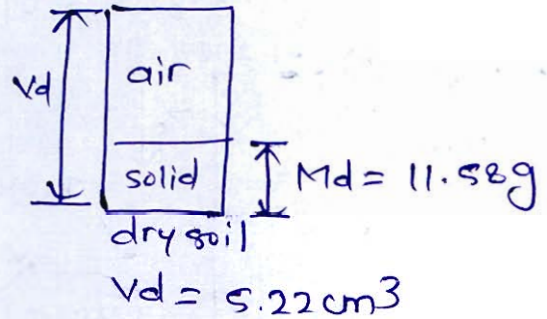 Vd
air
solid
Md = 11.58g
dry soil
Vd = 5.22cm3